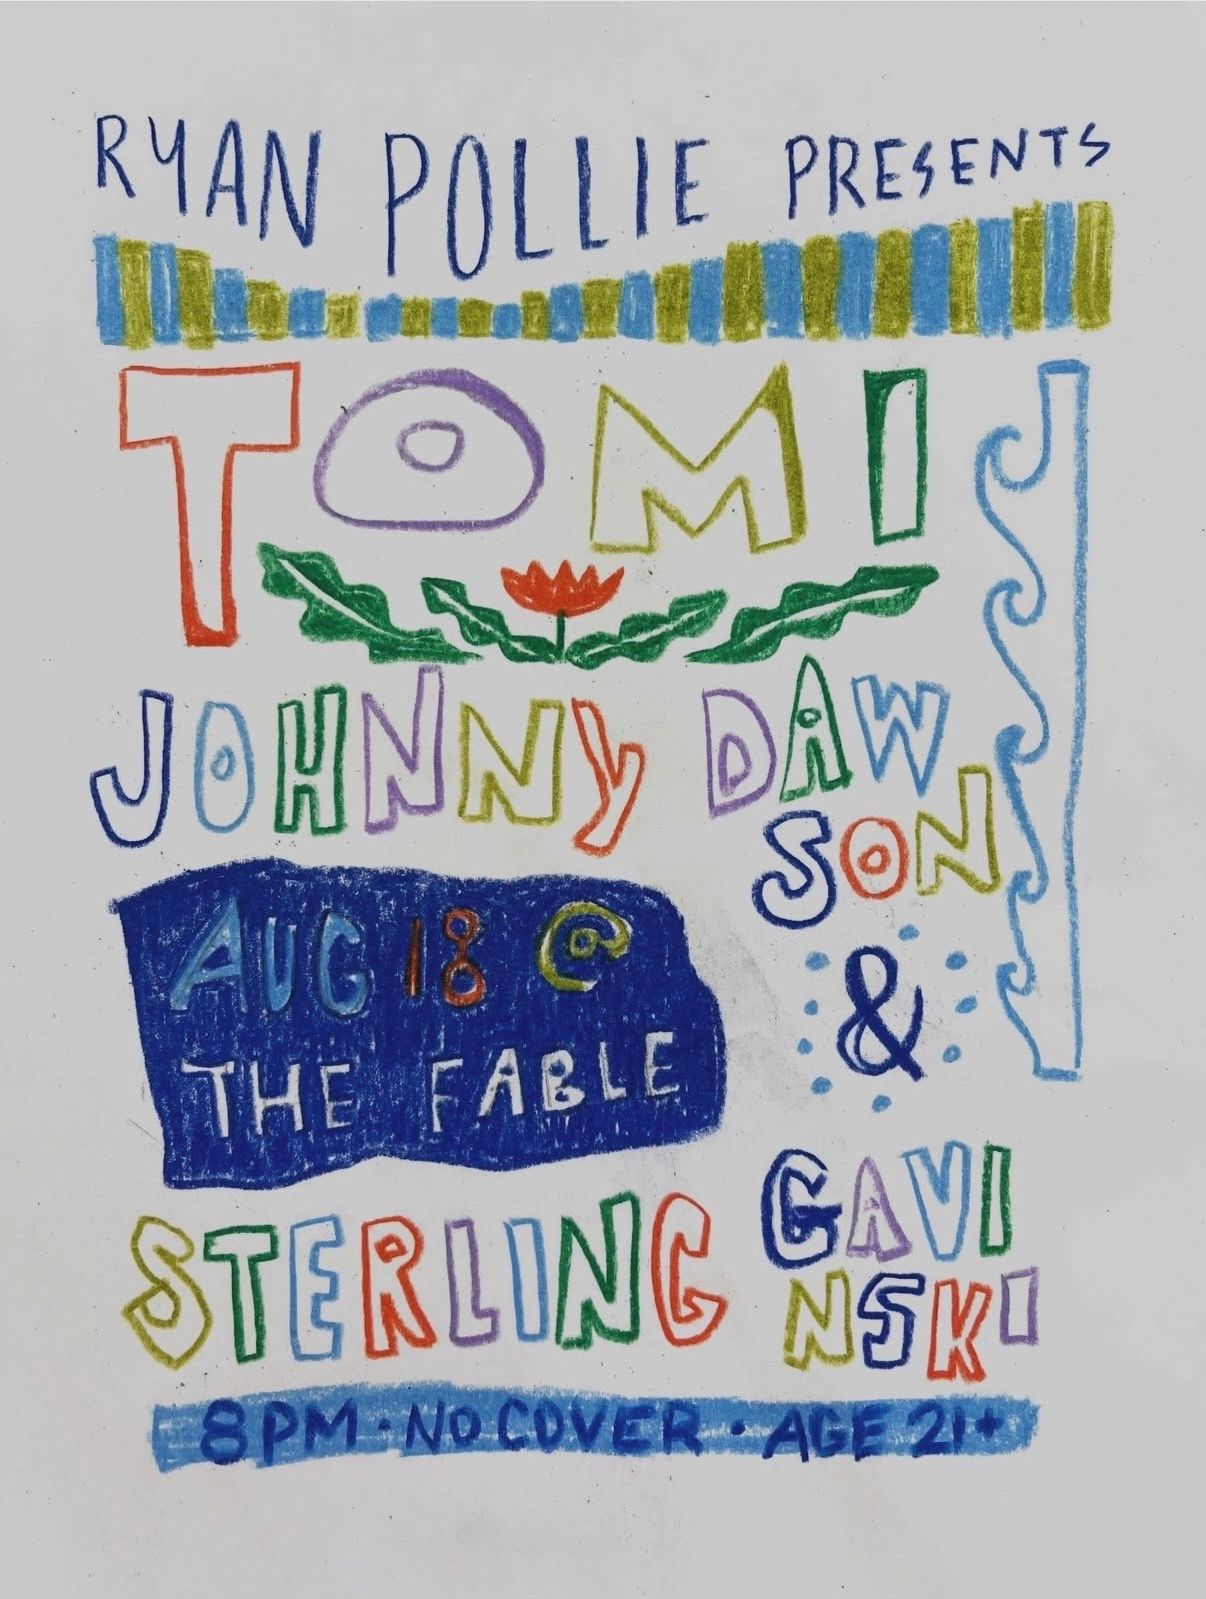 RYAN POLLIE PRESENTS
TOMI
JOHNNY DAW
SON
&
AUG 18 @
THE FABLE
STERLING GAVI
NSKI
8PM · NO COVER · AGE 21+